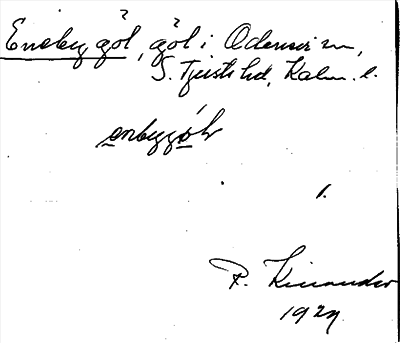 Eneby göl, göl i Odensvi sn,
S. Tjusts hd, Kalm. l.
enbygöl
1.
R. Kinander
1927